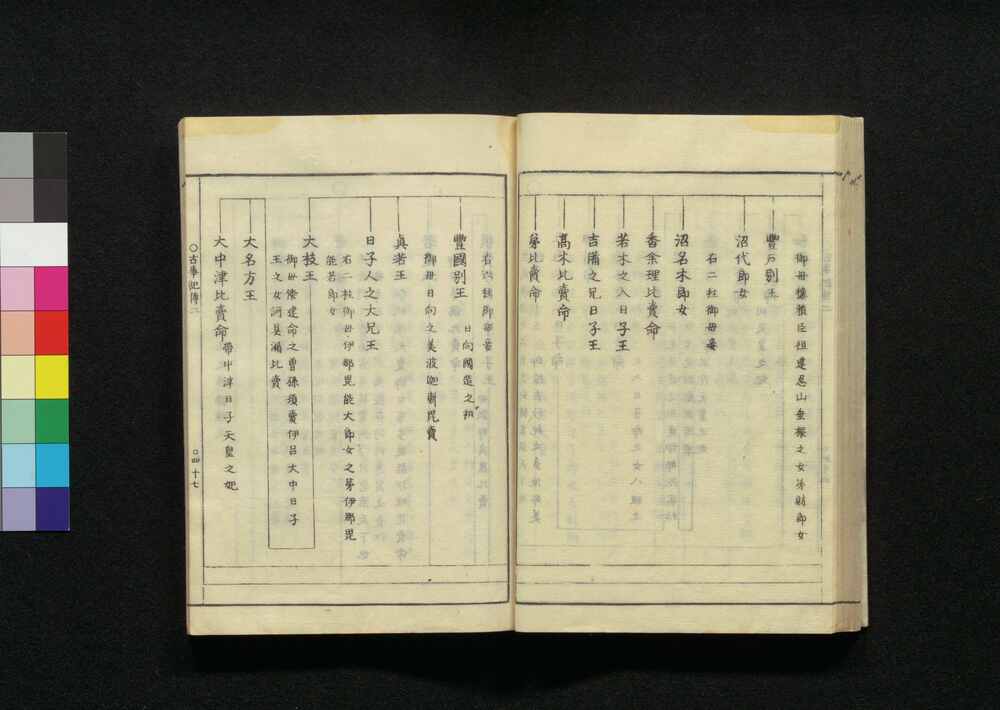 御母穗積臣祖建忍山垂根之女弟財郎女
豐戸別王
沼代郎女
右二柱御母妾
沼名木郎女
香余理比賣命
若木之入日子王
吉備之兄日子王
高木比賣命
弟比賣命
豐國別王
日向國造之祖
御母日向之美波迦斯毘賣
眞若王
日子人之大兄王
右二柱御母伊那毘能大郎女之弟伊那毘
能若郎女
大枝王
御母倭建命之曾孫須賣伊呂大中日子
王之女訶具漏比賣
大名方王
大中津比賣命
帶中津日子天皇之妃
○古事記傳二
○四十七